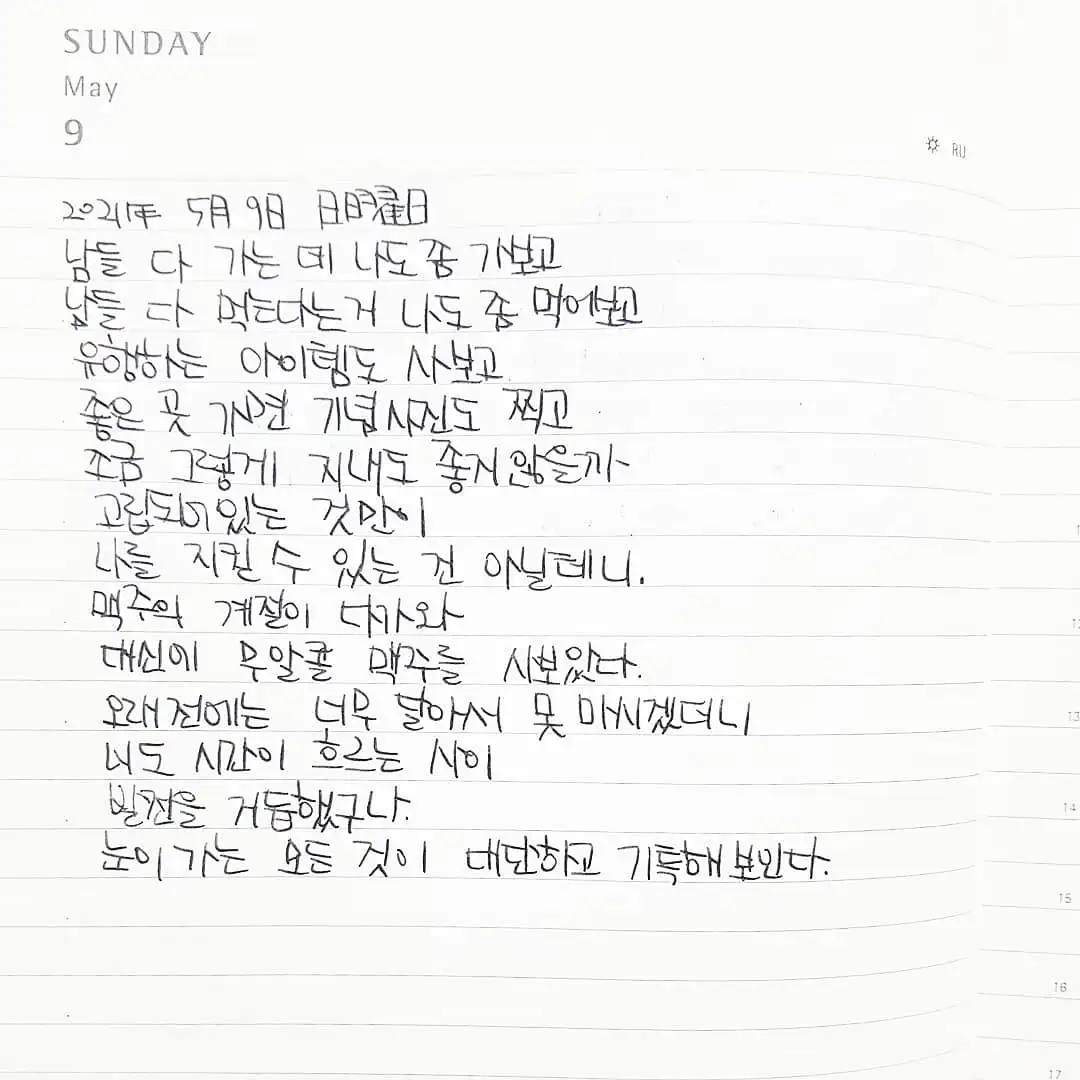 SUNDAY
May
9
RU
2021年 5月 9日 日曜日
남들 다 가는 데 나도 좀 가보고
남들 다 먹는다는거 나도 좀 먹어보고
유행하는 아이템도 사보고
좋은 곳 가면 기념사진도 찍고
조금 그렇게 지내도 좋지않을까
고립되어있는 것만이
나를 지킬 수 있는 건 아닐테니.
맥주의 계절이 다가와
대신에 무알콜 맥주를 사보았다.
오래전에는 너무 달아서 못 마시겠더니
너도 시간이 흐르는 사이
발전을 거듭했구나.
눈이 가는 모든 것이 대단하고 기특해보인다.
13
14
15
16
17